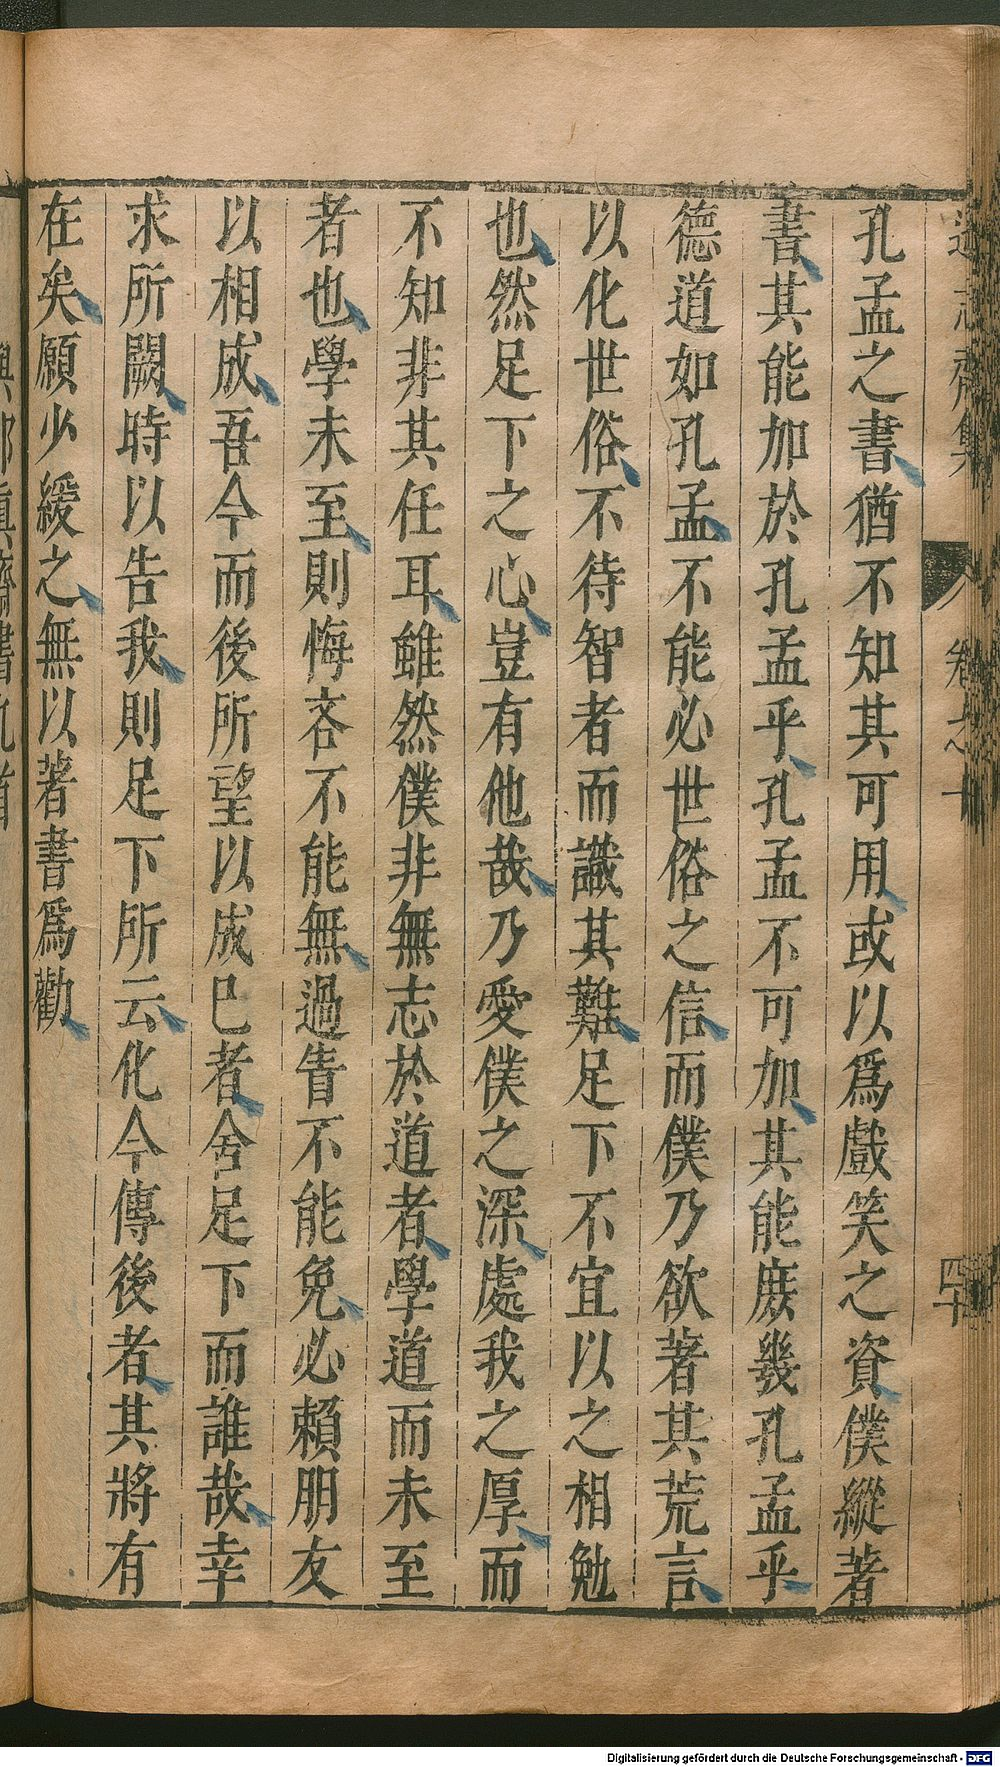 孔孟之書猶不知其可用或以爲戲笑之資僕縱著
書其能加於孔孟乎孔孟不可加其能庶幾孔孟乎
德道如孔孟不能必世俗之信而僕乃欲著其荒言
以化世俗不待智者而識其難足下不宜以之相勉
也然足下之心豈有他哉乃愛僕之深處我之厚而
不知非其任耳雖然僕非無志於道者學道而未至
者也學未至則悔吝不能無過眚不能免必賴朋友
以相成吾今而後所望以成已者舍足下而誰哉幸
求所闕時以告我則足下所云化今傳後者其將有
在矣願少緩之無以著書爲勸
志齋集
卷之十
四十
Digitalisierung gefördert durch die Deutsche Forschungsgemeinschaft - DFG